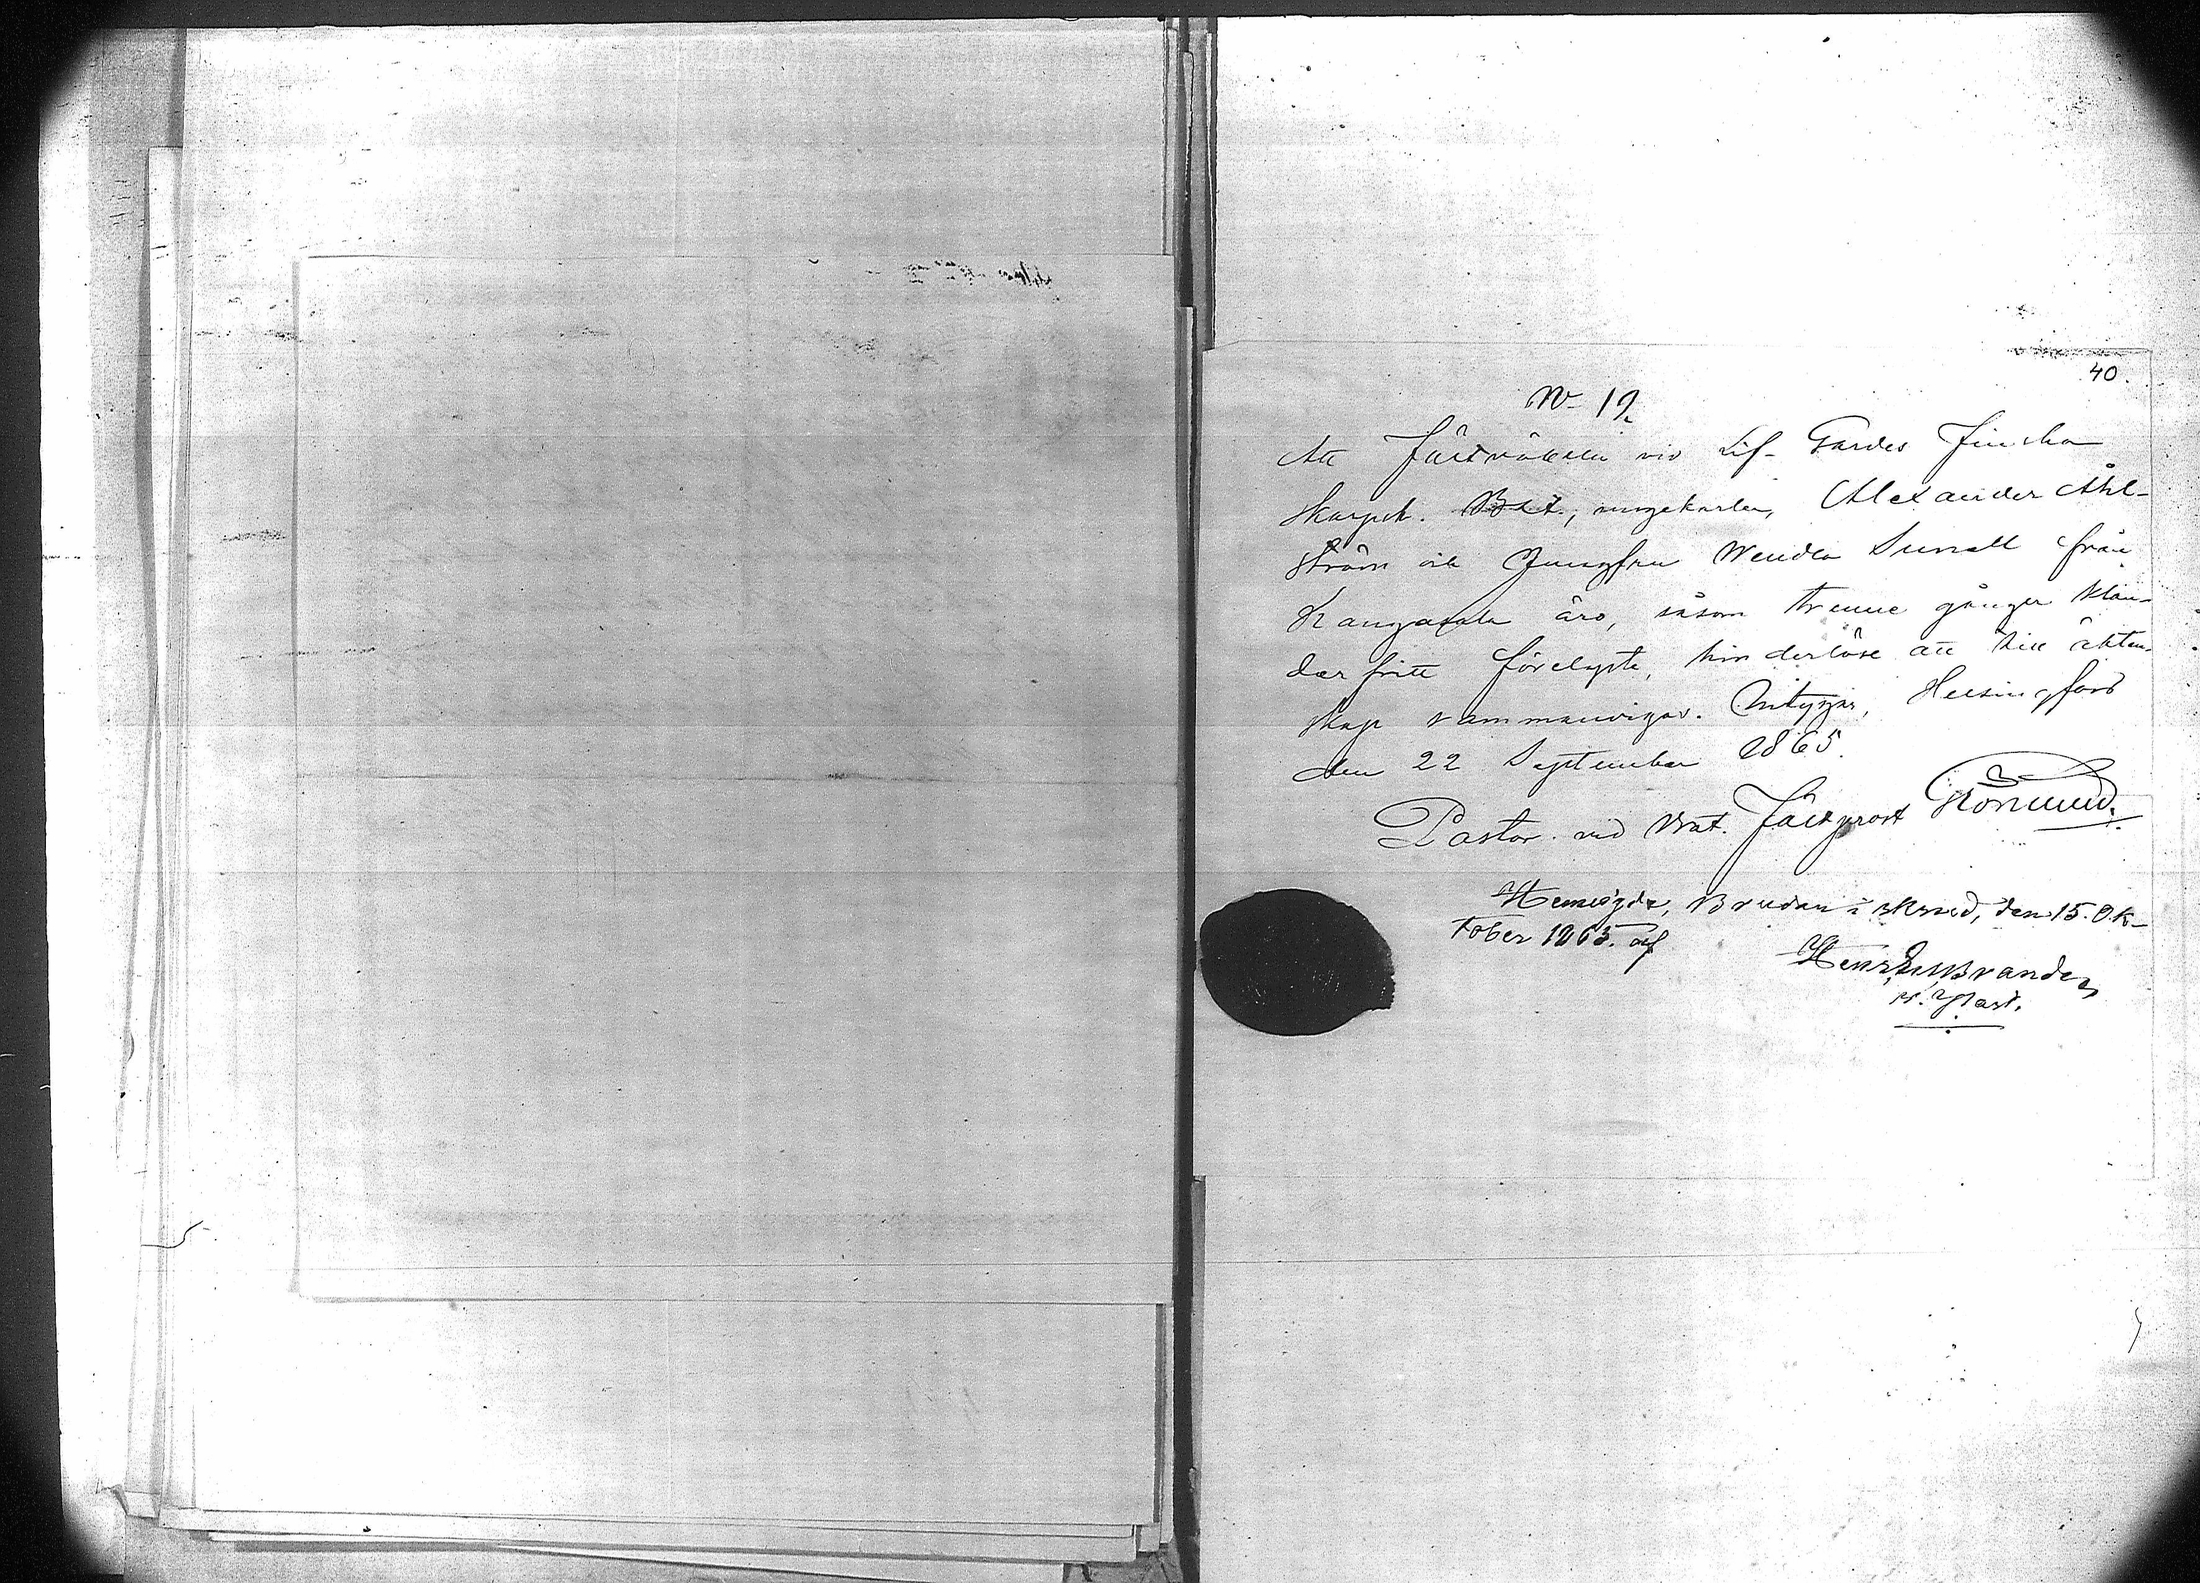 40.
No 19
Att Fältväbeln vid Lif-Gardes Finska
Skarpsk. Bat., ungkarlen, Alexander Åhl-
ström och Jungfru Wendla Sunell från
Kangasala äro, såsom trenne gånger klan-
derfritt förelyste, hinderlöse att till äkten-
skap sammanvigas. Intygar, Helsingfors
den 22 September 1865.
Pastor vid Bat. Fältprost
Hemvigde, Bruden i skrud, den 15. Ok-
tober 1865. af
Brander
v. Past.